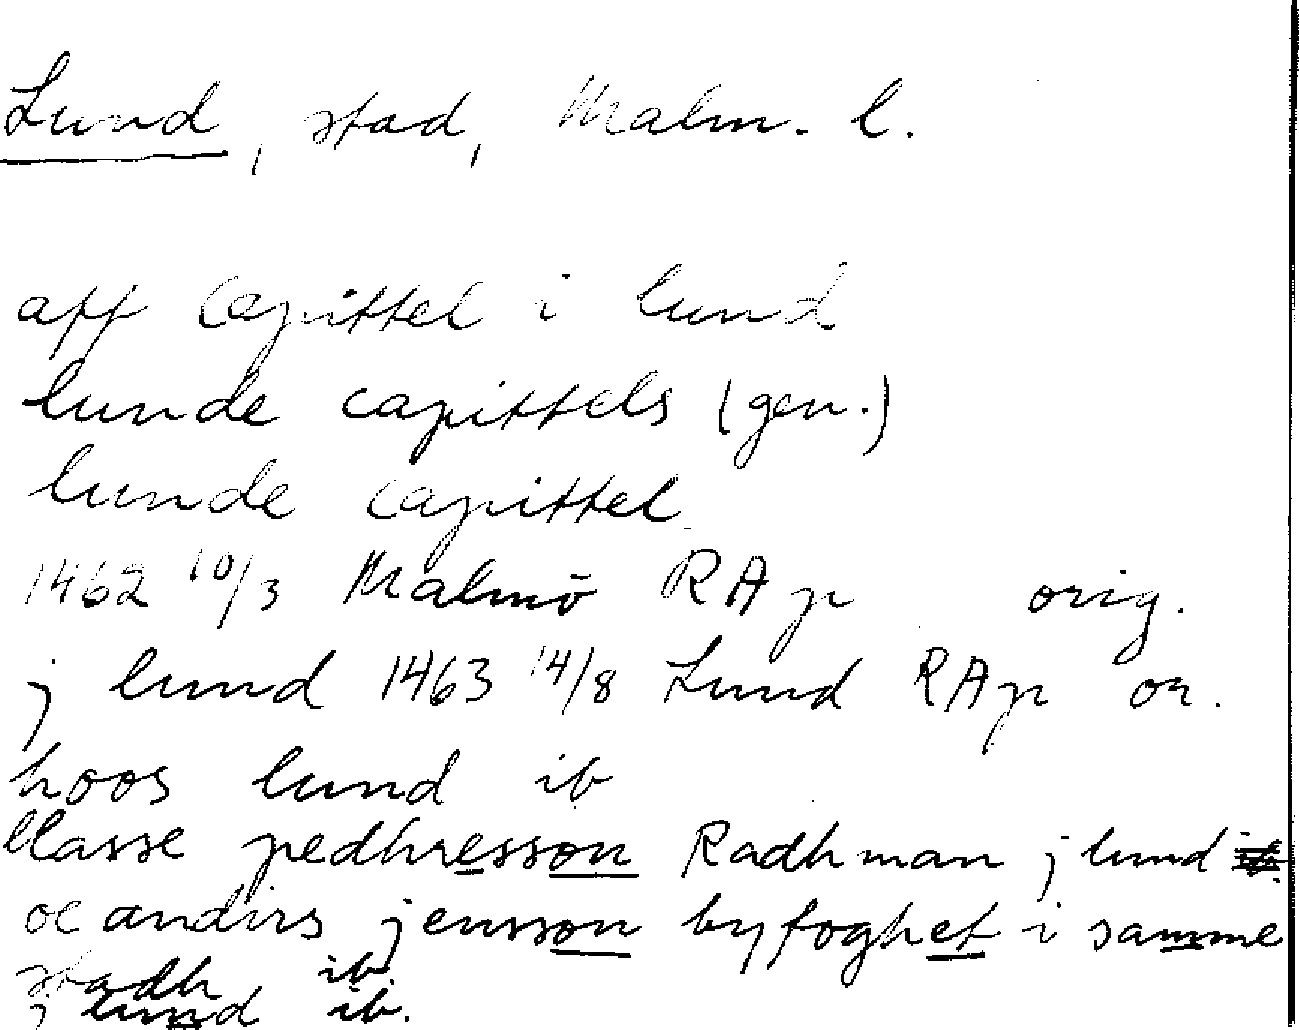 Lund, stad, Malm. l.
aff Capittel i lund
lunde capittels (gen.)
lunde capittel
1462 10/3 Malmö RAp orig.
j lund 1463 14/8 Lund RAp or.
hoos lund ib
Classe pedhresson Radhman j lund
oc andirs jensson byfoghet i samme
stadh ib.
j lund ib.